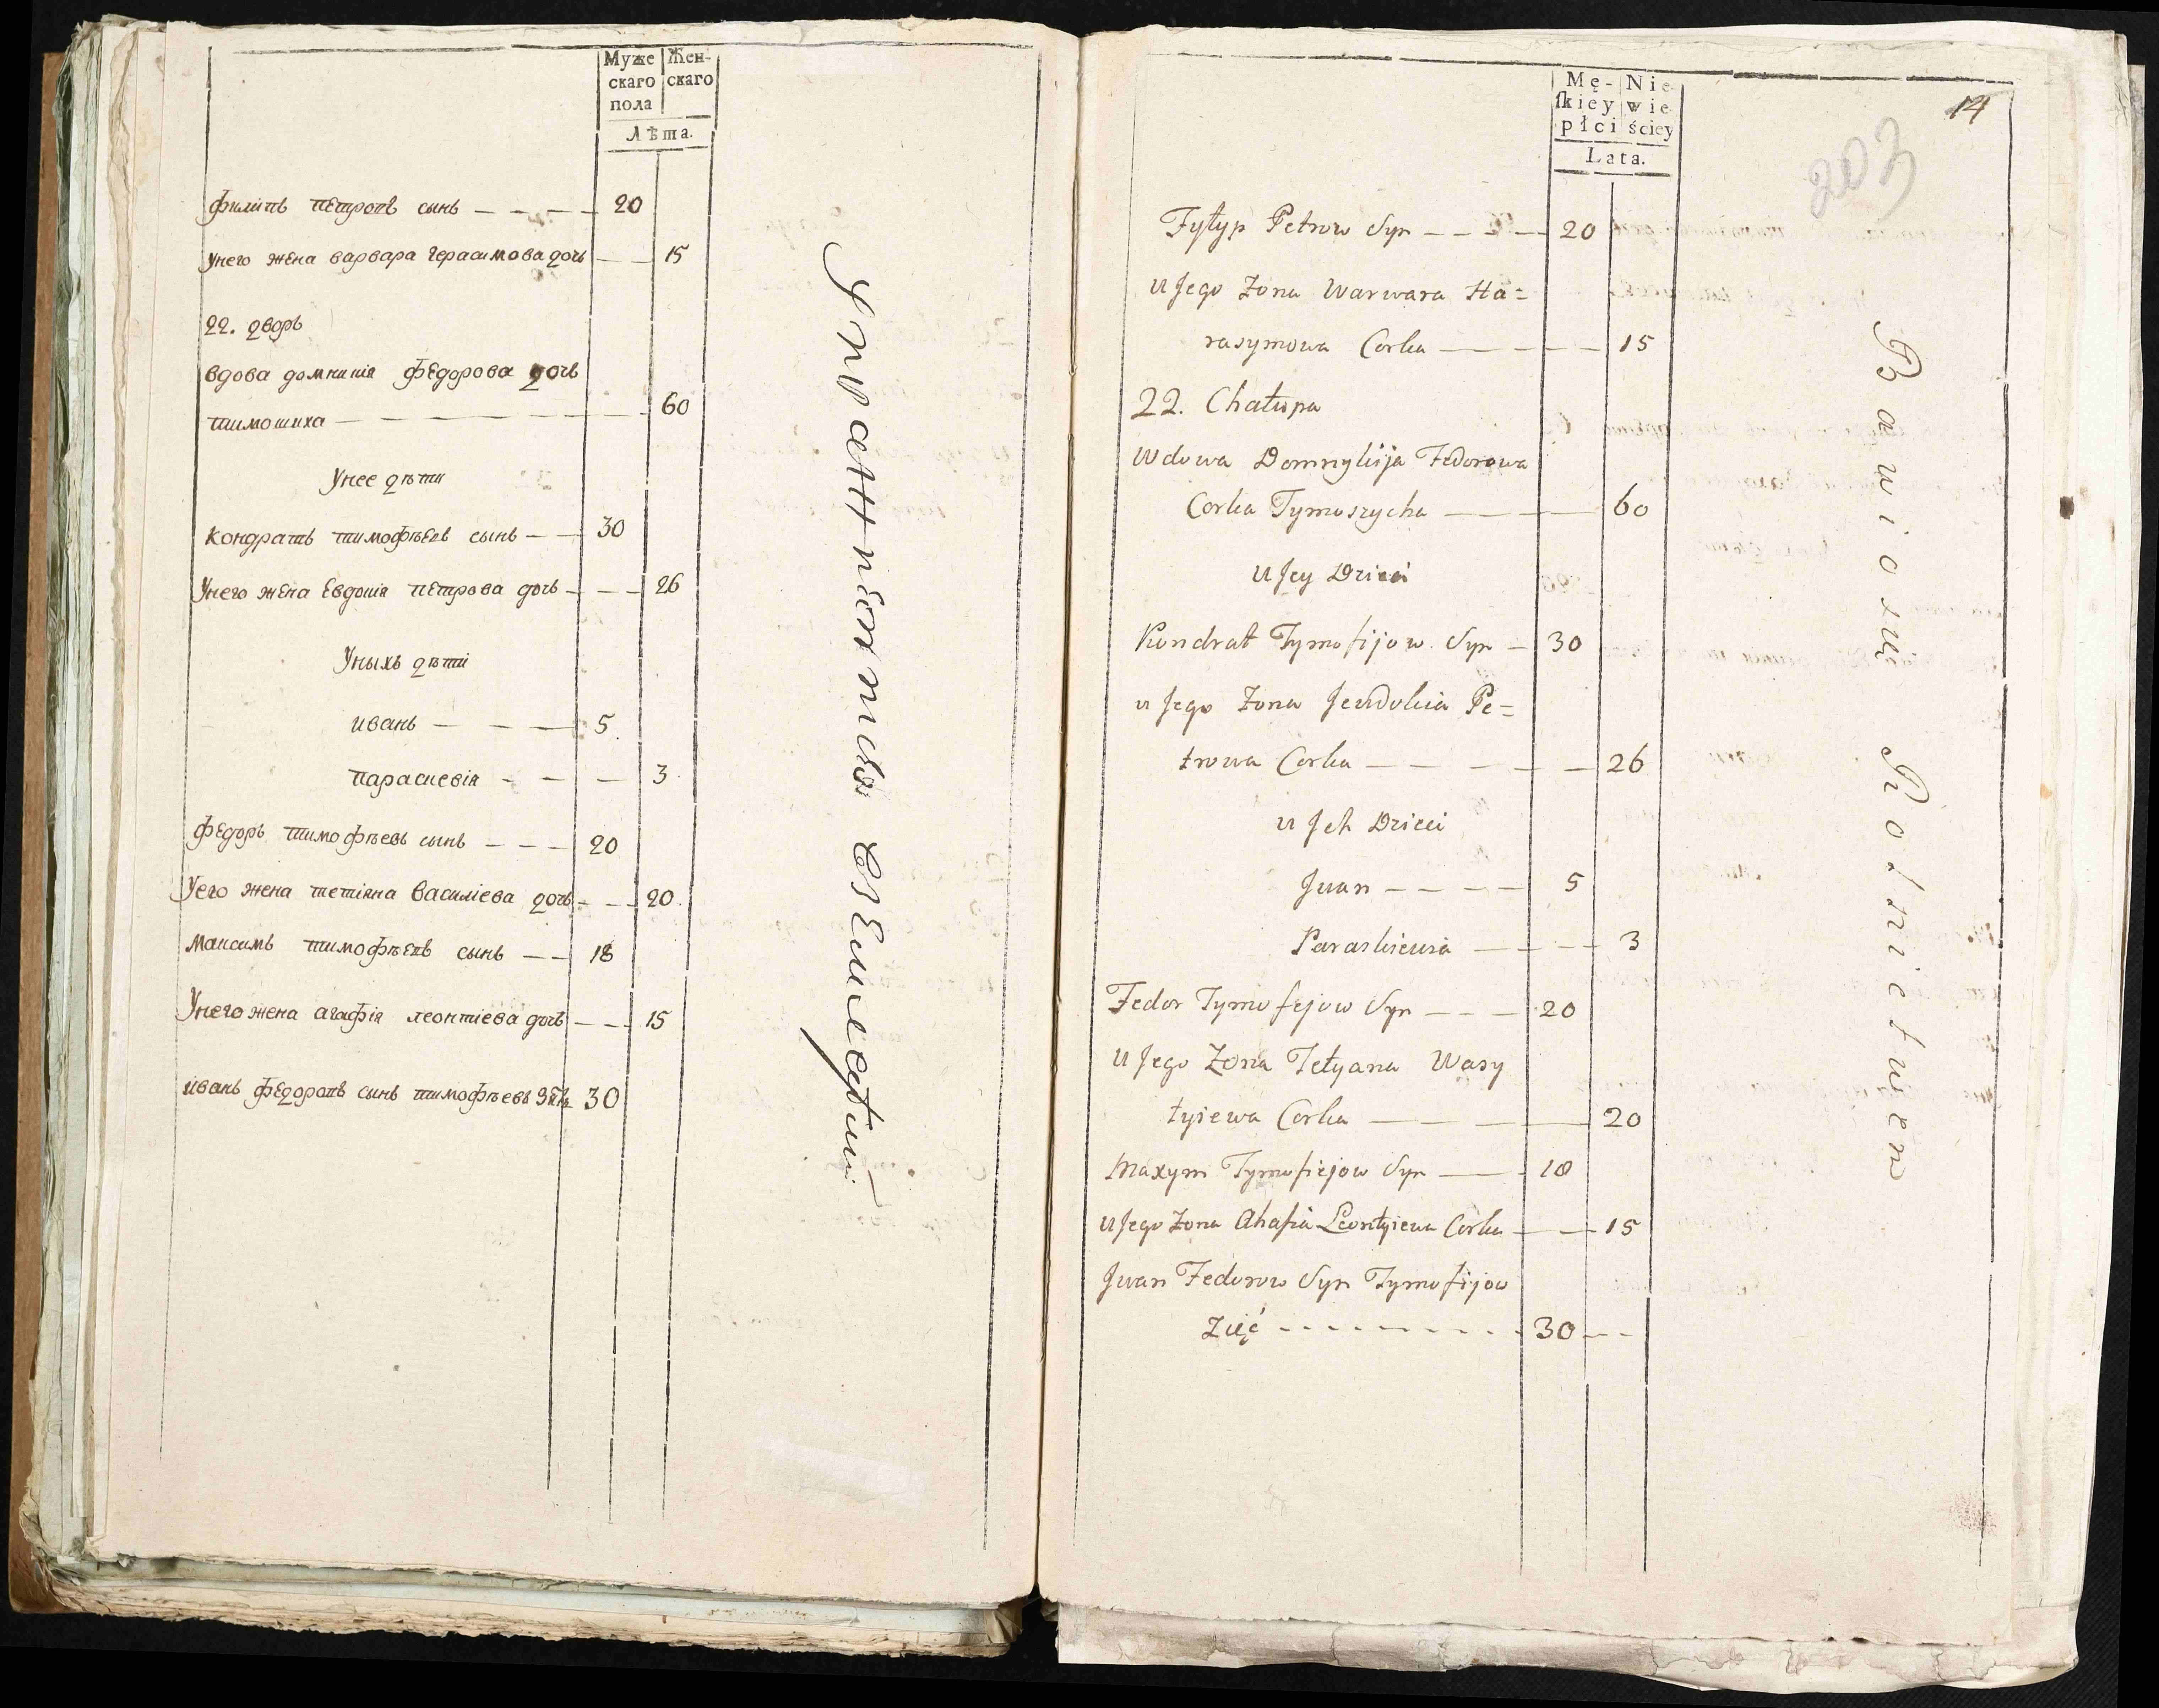 Муже Жен-
скаго скаго
пола
Лѣта.
филипъ петровъ сынъ — — — — 20
Унего жена варвара герасимова дочь — — 15
22. дворъ
вдова домникия федорова дочь
тимошиха — — — — — — 60
Унее дѣти
кондратъ тимофѣевъ сынъ — — 30
Унего жена Евдокия петрова дочь — — — 26
Уныхъ дѣти
иванъ — — — — 5
параскевія — — — 3
федоръ тимофѣевъ сынъ — — — 20
Уего жена тетіяна василіева дочь — — — 20
максимъ тимофѣевъ сынъ — — 18
Унего жена агафія леонтіева дочь — — — 15
иванъ федоровъ сынъ тимофѣевъ зять 30
Упражняются земледелием
14
203
Mę- Nie-
ſkiey wie-
płci ściey
Lata.
Fyłyp Petrow Syn — — — — 20
u Jego Żona Warwara Ha=
rasymowa Corka — — — — 15
22. Chałupa
Wdowa Domnykija Fedorowa
Corka Tymoszycha — — — 60
u Jey Dzieci
Kondrat Tymofijow Syn — 30
u Jego Żona Jewdokia Pe=
trowa Corka — — — — — 26
u Jch Dzieci
Jwan — — — — 5
Paraskiewia — — — 3
Fedor Tymofejow Syn — — — 20
u Jego Żona Tetyana Wasy
łyiewa Corka — — — — 20
Maxym Tymofiejow Syn — — 18
u Jego Żona Ahafia Leontyiewa Corka — — 15
Jwan Fedorow Syn Tymofijow
Zięć - - - - - - - - - 30 - -
Bawią się Rolnictwem